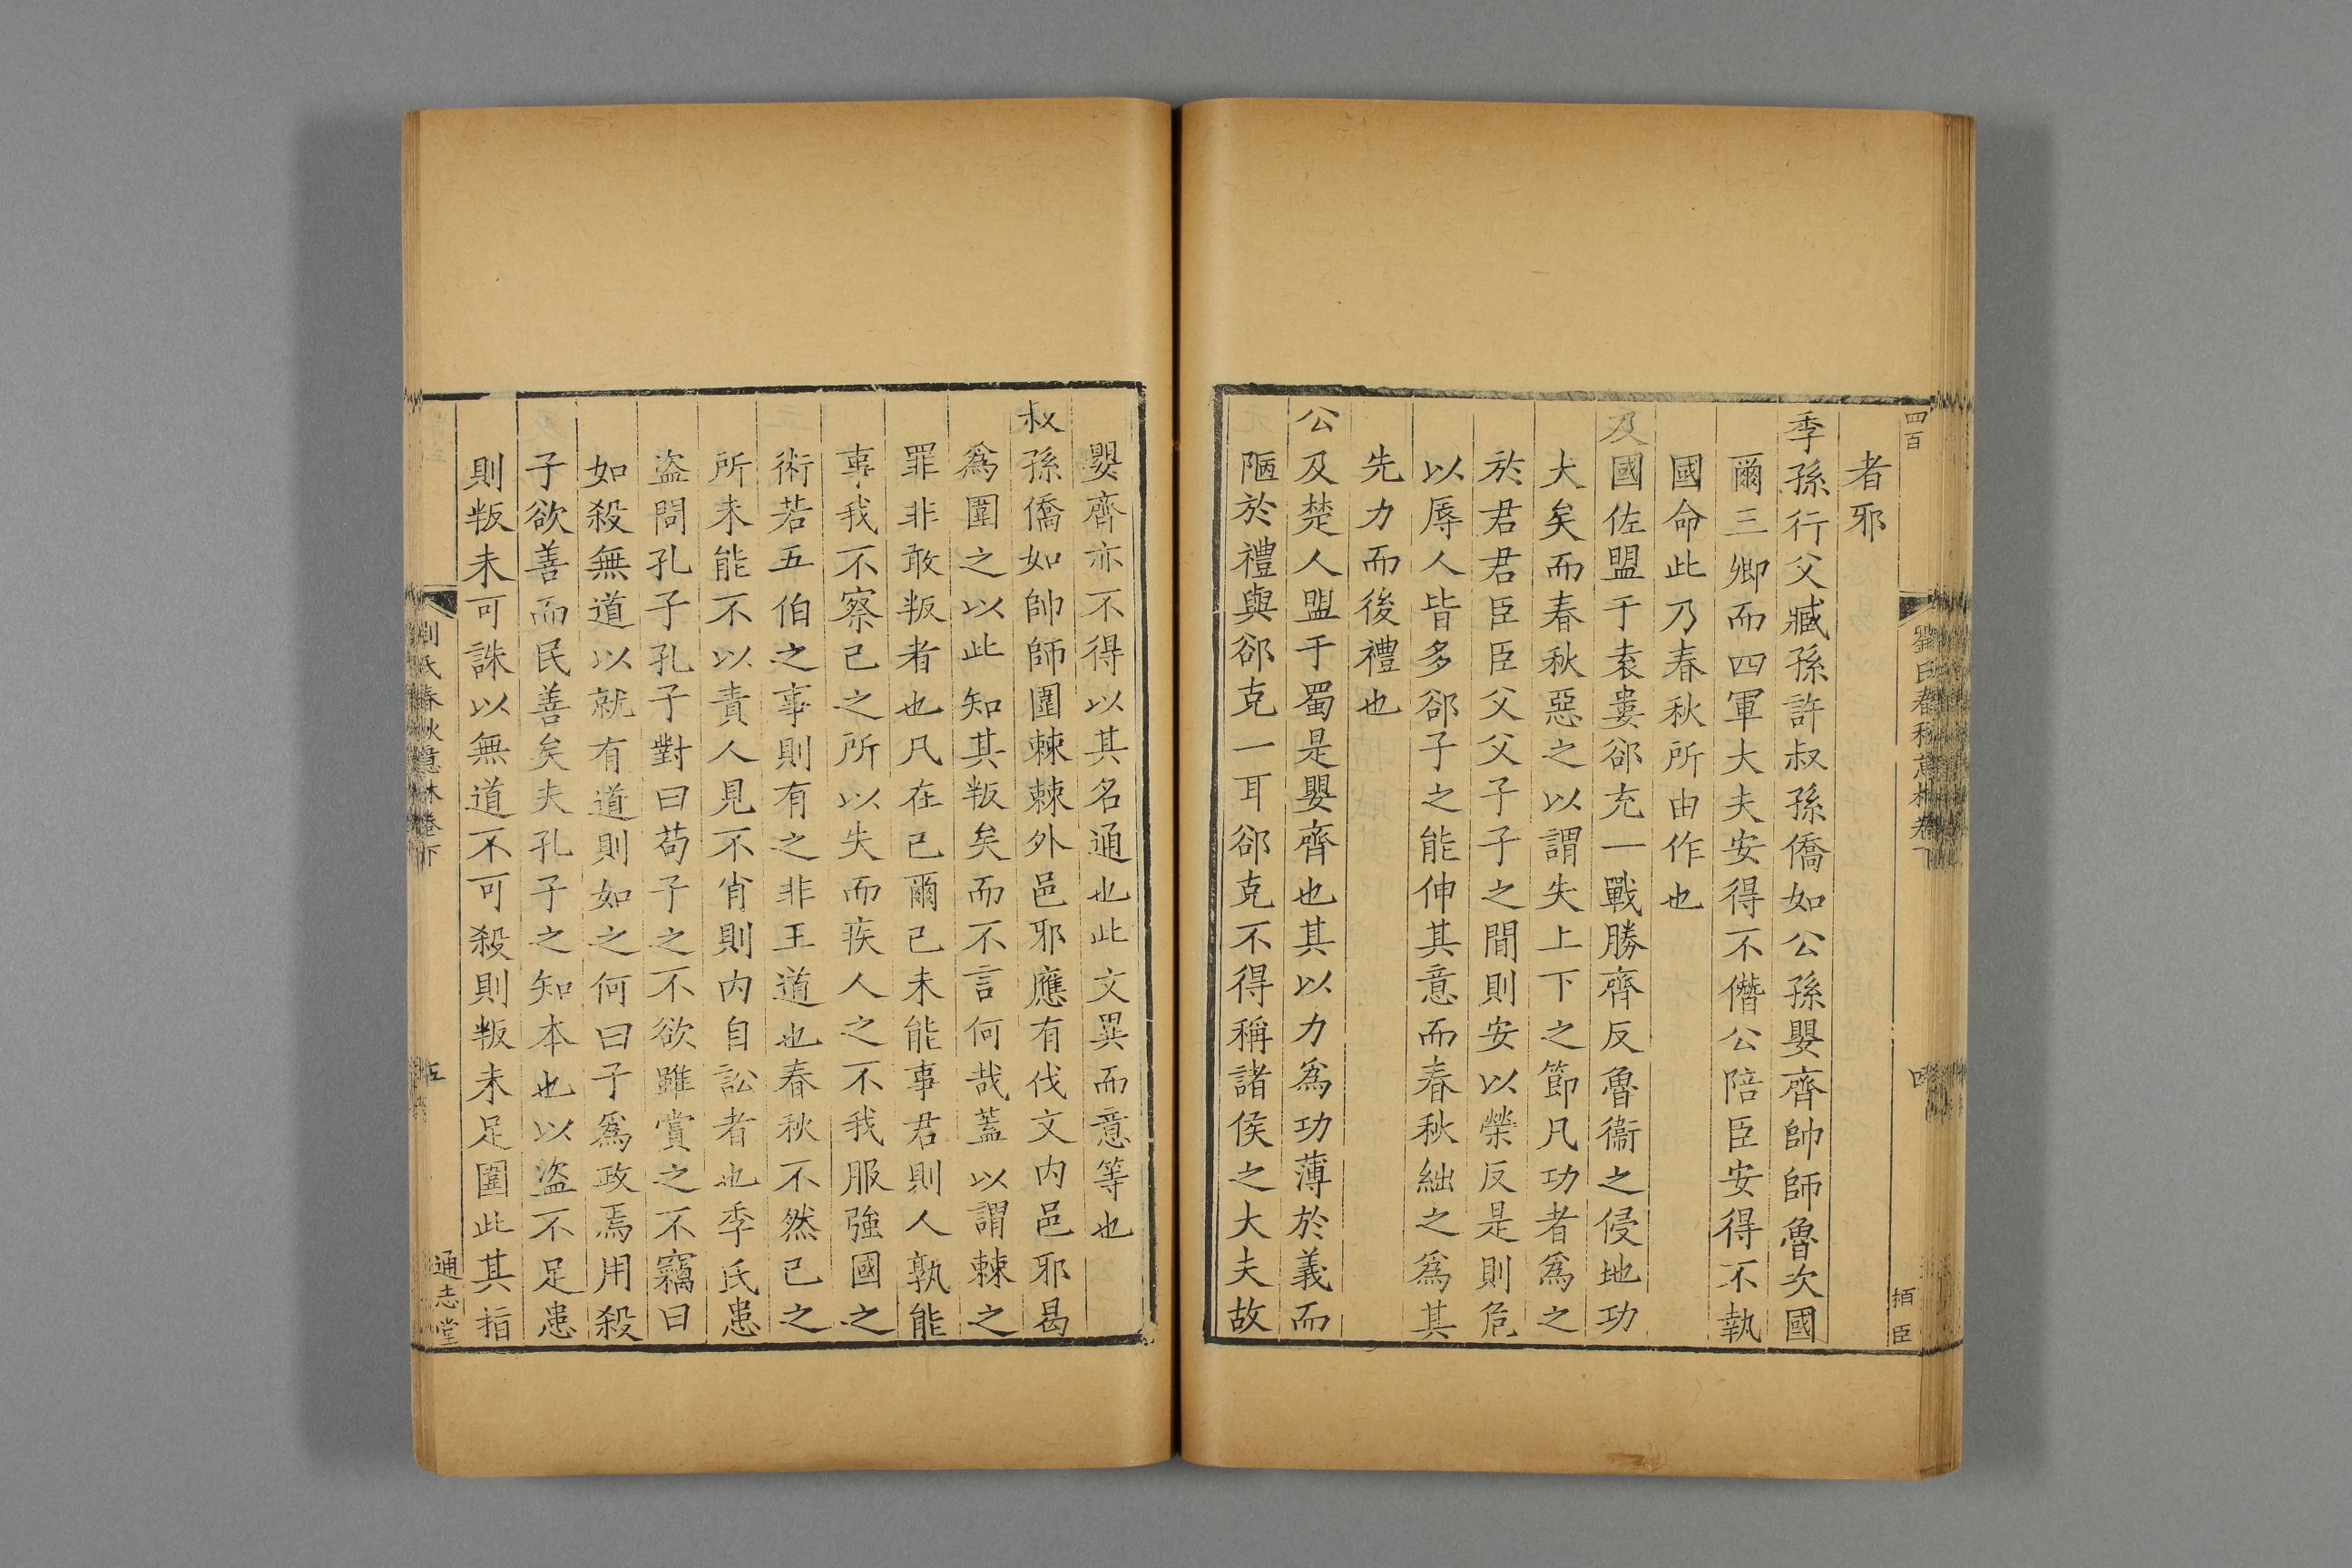 四百
者邪
季孫行父臧孫許叔孫僑如公孫嬰齊帥師魯次國
爾三卿而四軍大夫安得不僭公陪臣安得不執
國命此乃春秋所由作也
及國佐盟于袁婁郤充一戰勝齊反魯衞之侵地功
大矣而春秋惡之以謂失上下之節凡功者爲之
於君君臣臣父父子子之間則安以榮反是則危
以辱人皆多郤子之能伸其意而春秋絀之爲其
先力而後禮也
公及楚人盟于蜀是嬰齊也其以力爲功薄於義而
陋於禮與郤克一耳郤克不得稱諸侯之大夫故
嬰齊亦不得以其名通也此文異而意等也
叔孫僑如帥師圍棘棘外邑邪應有伐文内邑邪曷
爲圍之以此知其叛矣而不言何哉蓋以謂棘之
罪非敢叛者也凡在己爾己未能事君則人孰能
事我不察己之所以失而疾人之不我服強國之
術若五伯之事則有之非王道也春秋不然己之
所未能不以責人見不肖則内自訟者也季氏患
盜問孔子孔子對曰苟子之不欲雖賞之不竊曰
如殺無道以就有道則如之何曰子爲政焉用殺
子欲善而民善矣夫孔子之知本也以盜不足患
則叛未可誅以無道不可殺則叛未足圍此其指
劉氏春秋意林卷下
五
通志堂